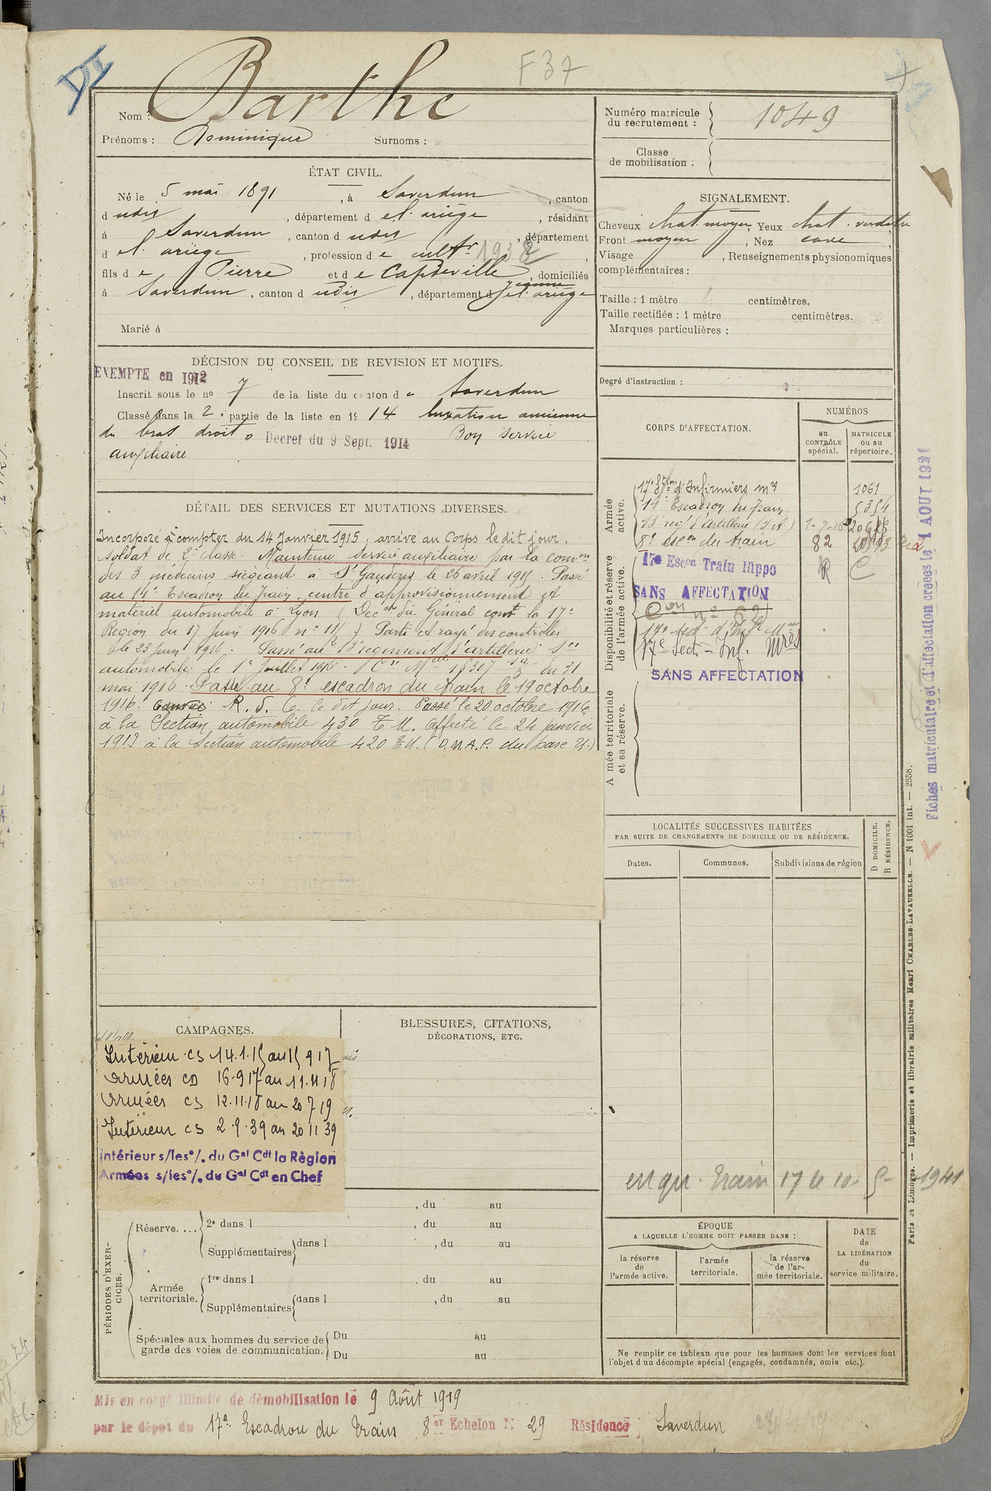 VI
F 37
Nom : Barthe
Prénoms : Dominique Surnoms :
ÉTAT CIVIL.
Né le 5 mai 1891, à Saverdun, canton
d udis, département d el'ariège, résidant
à Saverdun, canton d udis, département
d el'ariège, profession d e cultr 1938
fils d e Pierre et d e Capdeville Jeanne, domiciliés
à Saverdun, canton d udis, département d el'ariège
Marié à
DÉCISION DU CONSEIL DE REVISION ET MOTIFS.
EXEMPTE en 1912
Inscrit sous le n° 7 de la liste du canton d e Saverdun
Classé dans la 2e partie de la liste en 1914 luxation ancienne
du bras droit. Décret du 9 Sept. 1914 Bon service
auxiliaire
DÉTAIL DES SERVICES ET MUTATIONS DIVERSES.
Incorporé à compter du 14 janvier 1915, arrivé au Corps le dit jour.
soldat de 2e classe. Maintenu service auxiliaire par la Comon
des 3 médecins siégeant à St Gaudens le 26 avril 1915. Passé
au 14e Escadron du train, centre d'approvisionnement et
matériel automobile à Lyon (Décon du Général comt la 17e
Région du 17 juin 1916 n° 111) Parti et rayé des contrôles
le 23 juin 1916. Passé au 13e régiment d'artillerie Sce
automobile le 1er Juillet 1916.
mai 1916. Passé au 8e escadron du train le 19 octobre
1916. R. d. C. le dit jour. Passé le 20 octobre 1916
à la Section automobile 430 T.M. Affecté le 24 janvier
1917 à la Section automobile 420 T.M. (D.M.A.P. du parc
CAMPAGNES.
Intérieur cs 14.1.15 au 15 9 17
Armées cD 16.9.17 au 11.11.18
Armées cs 12.11.18 au 20 7 19
Intérieur cs 2.9.39 au 20 11 39
Intérieur s/les °/. du Gal Cdt la Région
Armées s/les °/. du Gal Cdt en Chef
BLESSURES, CITATIONS,
DÉCORATIONS, ETC.
PÉRIODES D'EXERCICES.
, du au
Réserve. .... 2e dans l , du au
Supplémentaires dans l , du au
Armée territoriale. 1re dans l , du au
Supplémentaires dans l , du au
Spéciales aux hommes du service de garde des voies de communication. Du au
Du au
Mis en congé illimité de démobilisation le 9 Août 1919
par le dépôt du 17e Escadron du Train 8er Echelon N° 29 Résidence Saverdun
Numéro matricule
du recrutement : 1049
Classe
de mobilisation :
SIGNALEMENT.
Cheveux chat. moyen, Yeux chat. verdatre
Front moyen, Nez cave
Visage , Renseignements physionomiques
complémentaires :
Taille : 1 mètre centimètres.
Taille rectifiée : 1 mètre centimètres.
Marques particulières :
Degré d'instruction :
CORPS D'AFFECTATION.
NUMÉROS
AU CONTRÔLE spécial.
MATRICULE OU AU répertoire.
Armée active.
17e Son d'Infirmiers mres 1061
14e Escadron du train 5354
13e reg. d'artillerie
8e escon du train 82
Disponibilité et réserve de l'armée active.
17e Escon Train Hippo
SANS AFFECTATION
17e Secti - Inf. Mres
SANS AFFECTATION
Armée territoriale et sa réserve.
LOCALITÉS SUCCESSIVES HABITÉES
PAR SUITE DE CHANGEMENTS DE DOMICILE OU DE RÉSIDENCE.
Dates. Communes. Subdivisions de région
D DOMICILE.
R RÉSIDENCE.
Train 17 le 1941
ÉPOQUE
A LAQUELLE L'HOMME DOIT PASSER DANS :
la réserve de l'armée active.
l'armée territoriale.
la réserve de l'armée territoriale.
DATE de LA LIBÉRATION du service militaire.
Ne remplir ce tableau que pour les hommes dont les services font
l'objet d'un décompte spécial (engagés, condamnés, omis etc.).
Paris et Limoges. — Imprimerie et librairie militaires Henri CHARLES-LAVAUZELLE. — N 1001 int. — 2558.
Fiches matriculaire et d'affectation créées le 1 AOUT 1921